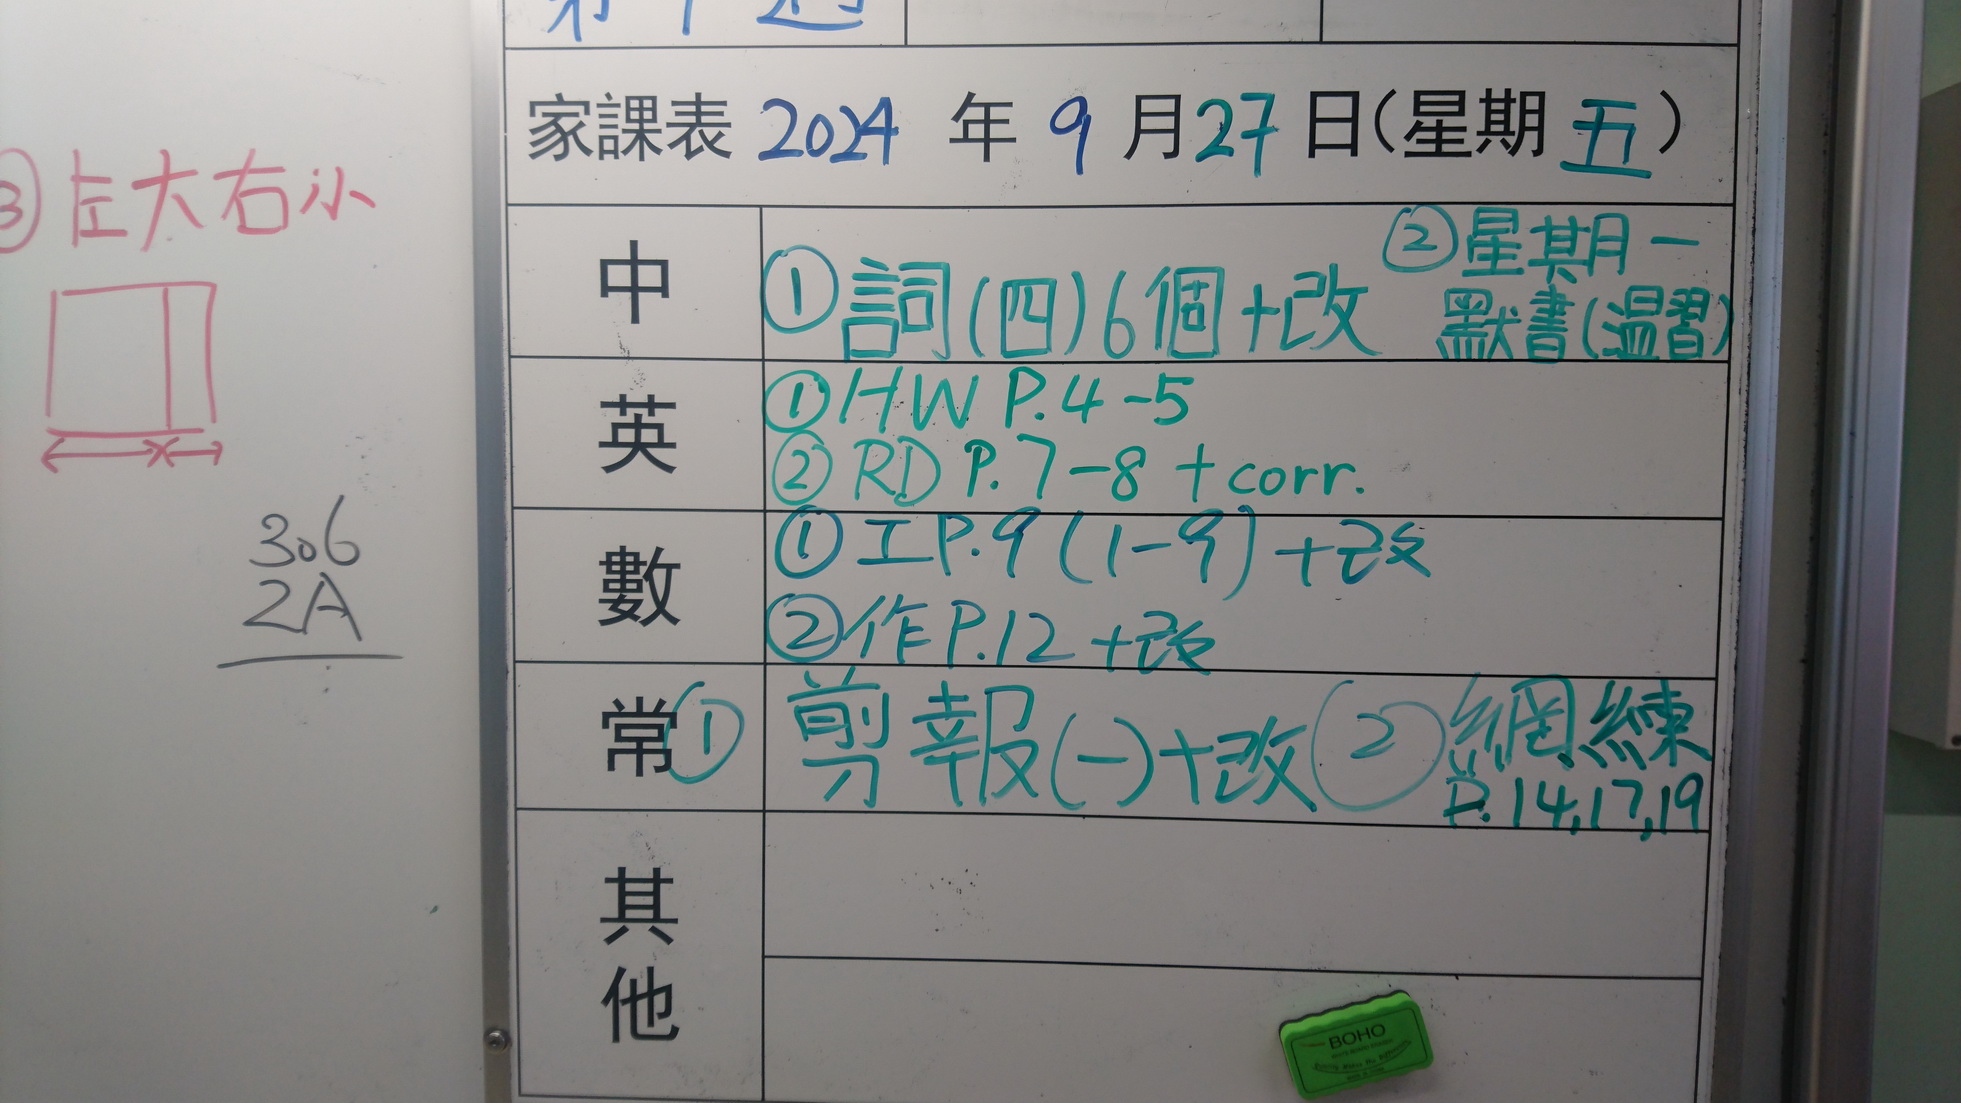 家課表 2024 年 9 月 27 日(星期 五)
中 ① 詞(四)6個+改 ② 星期一
默書(温習)
英 ① HW P.4-5
② RD P.7-8 + corr.
數 ① 工P.9 (1-9) +改
② 作P.12 +改
常 ① 剪報(一)+改 ② 網練
P.14,17,19
其他
③ 左大右小
306
2A
BOHO